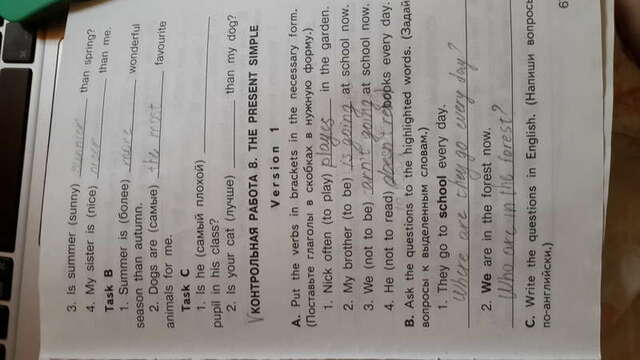 3. Is summer (sunny) sunnier than spring?
4. My sister is (nice) nicer than me.
Task B
1. Summer is (более) more wonderful
season than autumn.
2. Dogs are (самые) the most favourite
animals for me.
Task C
1. Is he (самый плохой)
pupil in his class?
2. Is your cat (лучше) than my dog?
√КОНТРОЛЬНАЯ РАБОТА 8. THE PRESENT SIMPLE
Version 1
A. Put the verbs in brackets in the necessary form.
(Поставьте глаголы в скобках в нужную форму.)
1. Nick often (to play) playes in the garden.
2. My brother (to be) is going at school now.
3. We (not to be) arn't going at school now.
4. He (not to read) doesn't read books every day.
B. Ask the questions to the highlighted words. (Задай
вопросы к выделенным словам.)
1. They go to school every day.
Where are they go every day?
2. We are in the forest now.
Who are in the forest?
C. Write the questions in English. (Напиши вопросы
по-английски.)
6